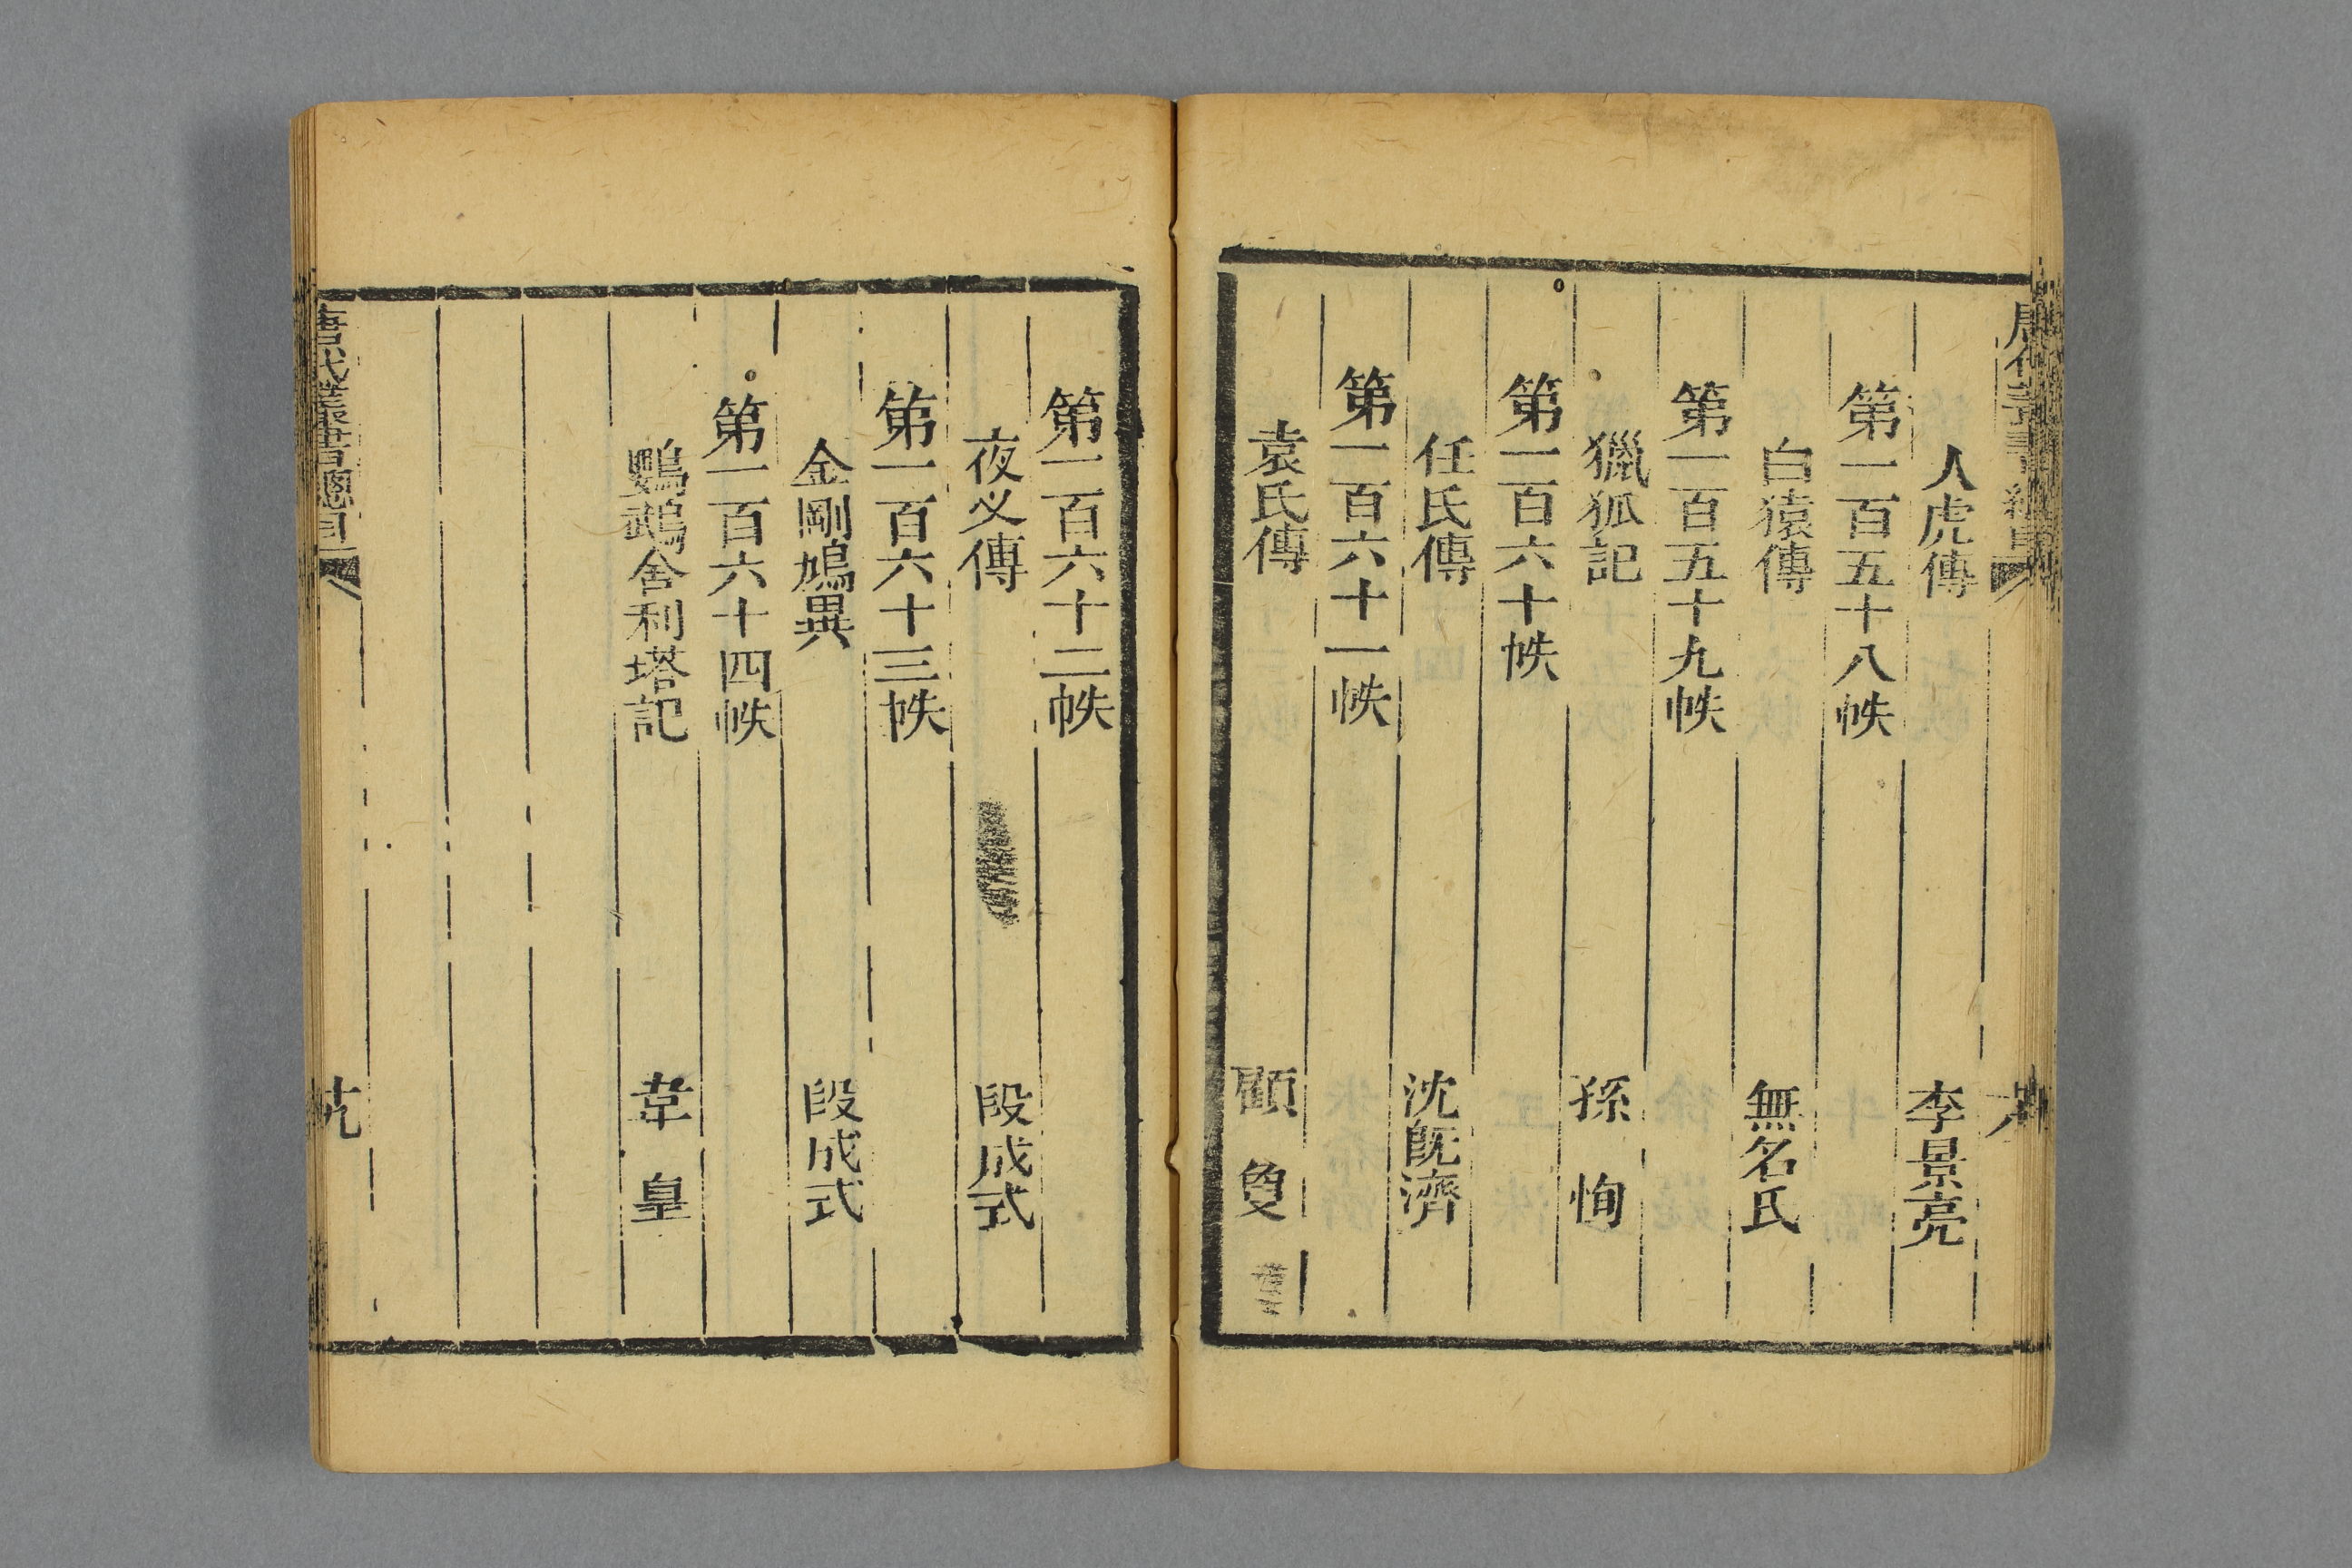 人虎傳 李景亮
第一百五十八帙
白猿傳 無名氏
第一百五十九帙
獵狐記 孫恂
第一百六十帙
任氏傳 沈旣濟
第一百六十一帙
袁氏傳 顧夐
第一百六十二帙
夜叉傳 段成式
第一百六十三帙
金剛鳩異 段成式
第一百六十四帙
鸚鵡舍利塔記 韋皇
唐代叢書總目